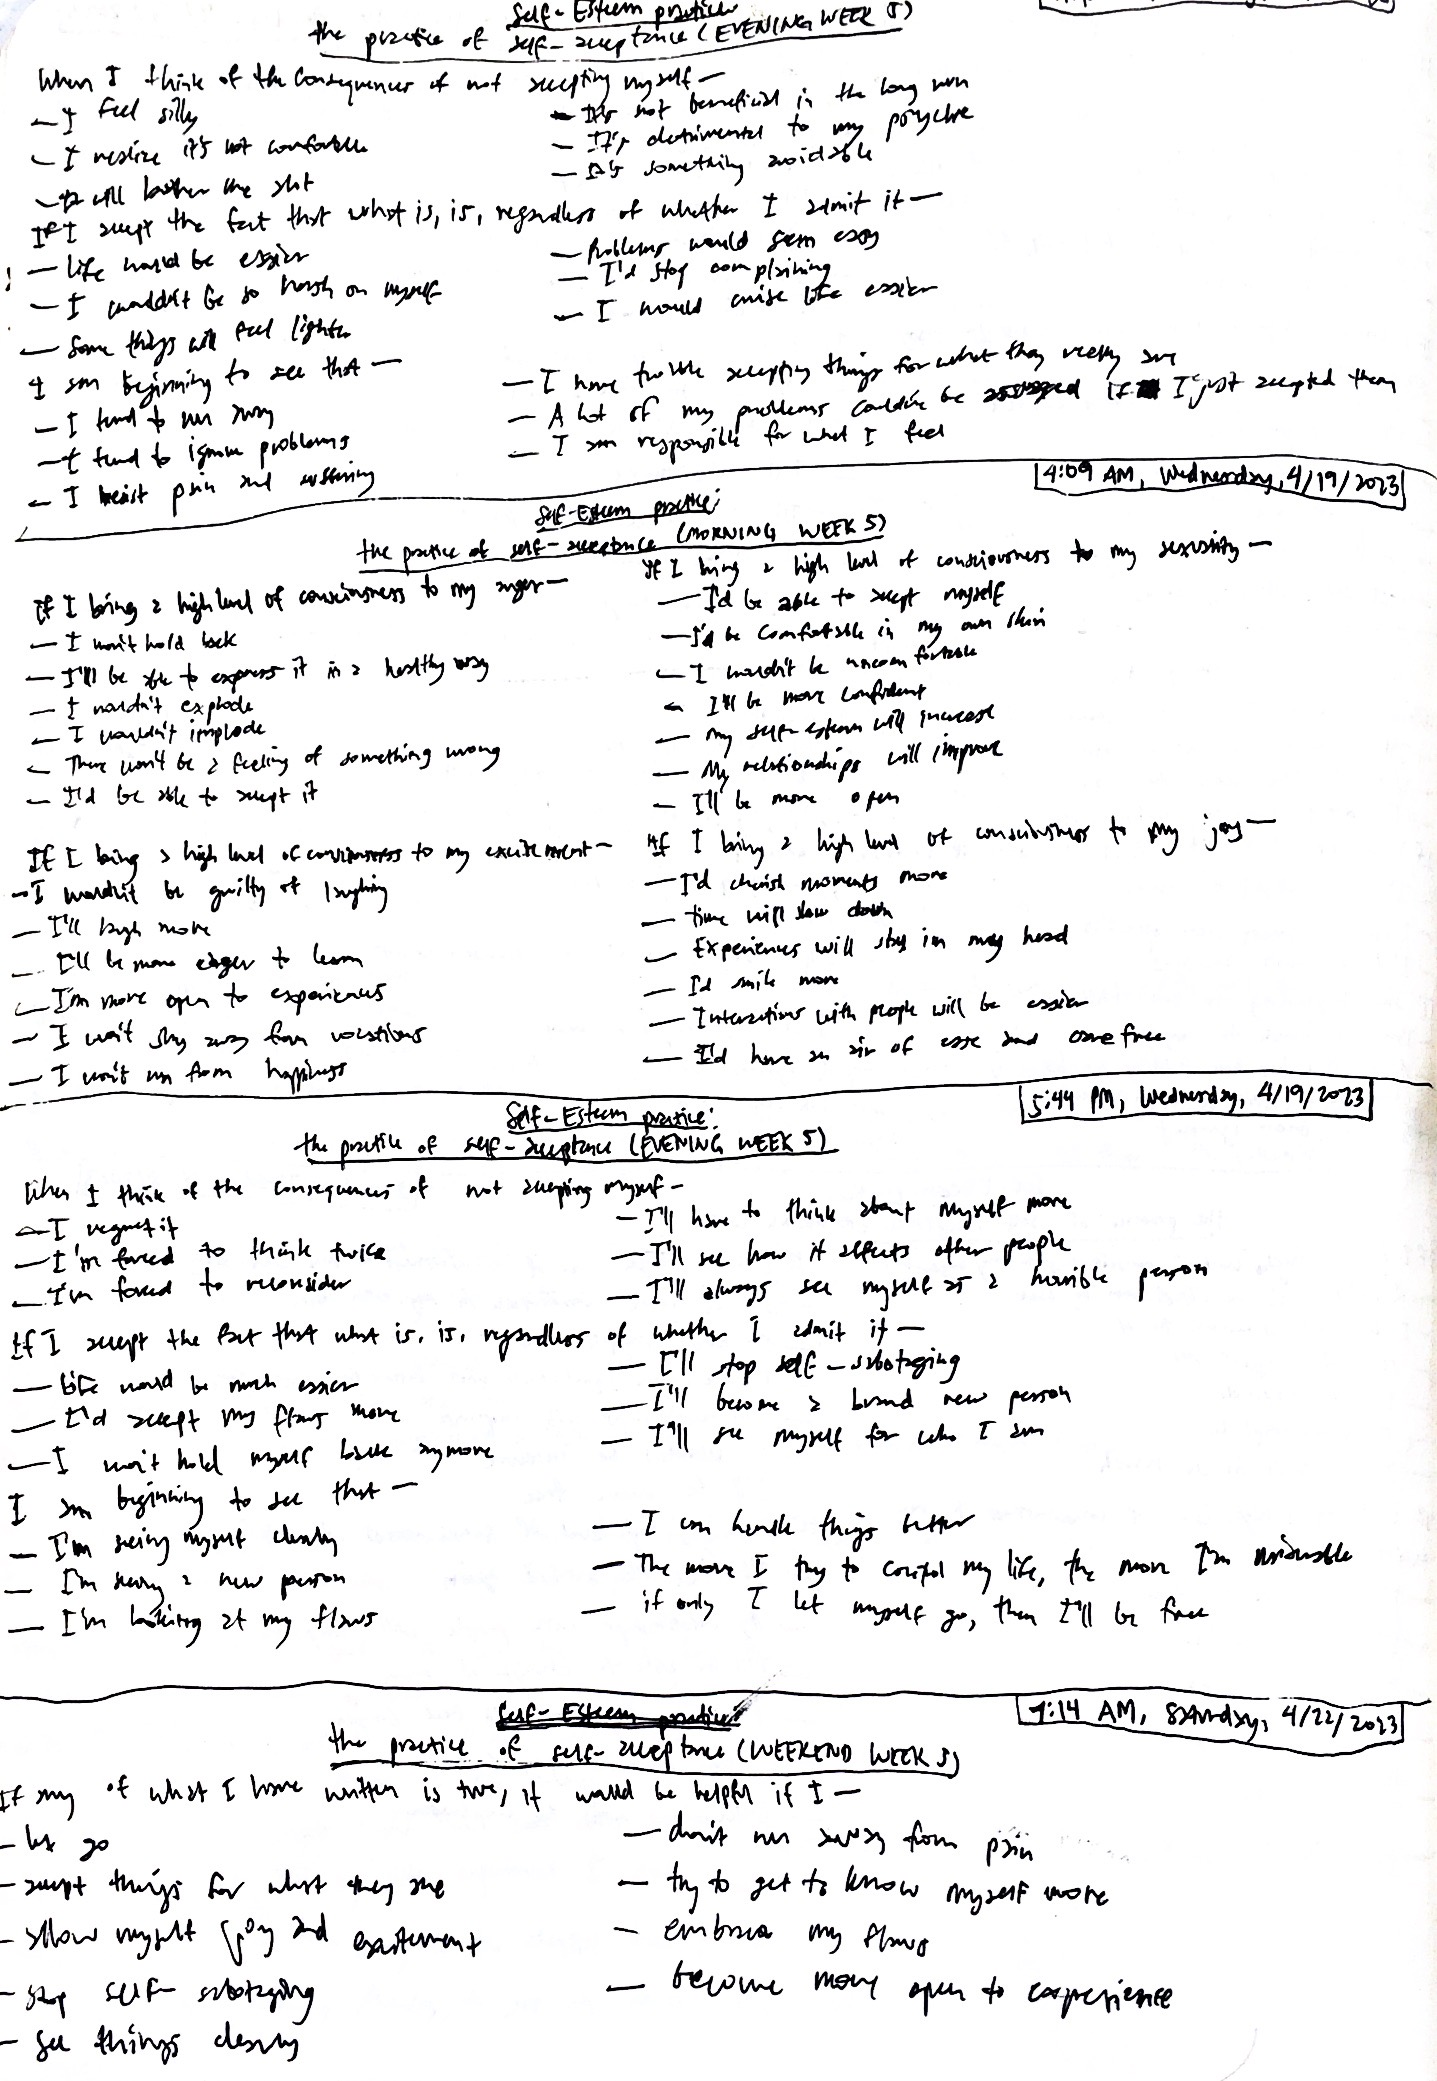 Self-Esteem practice
the practice of self-acceptance (EVENING WEEK 5)
When I think of the consequences of not accepting myself —
— I feel silly
— I realize it's not comfortable
— It will bother me alot
— It's not beneficial in the long run
— It's detrimental to my psyche
— It's something avoidable
If I accept the fact that what is, is, regardless of whether I admit it —
— Life would be easier
— I wouldn't be so harsh on myself
— Some things will feel lighter
— Problems would seem easy
— I'd stop complaining
— I would cruise life easier
I am beginning to see that —
— I tend to run away
— I tend to ignore problems
— I resist pain and suffering
— I have trouble accepting things for what they really are
— A lot of my problems could've be if I just accepted them
— I am responsible for what I feel
4:09 AM, Wednesday, 4/19/2023
Self-Esteem practice:
the practice of self-acceptance (MORNING WEEK 5)
If I bring a high level of consciousness to my anger —
— I won't hold back
— I'll be able to express it in a healthy way
— I wouldn't explode
— I wouldn't implode
— There won't be a feeling of something wrong
— I'd be able to accept it
If I bring a high level of consciousness to my sexuality —
— I'd be able to accept myself
— I'd be comfortable in my own skin
— I wouldn't be uncomfortable
— I'll be more confident
— my self-esteem will increase
— My relationships will improve
— I'll be more open
If I bring a high level of consciousness to my excitement —
— I wouldn't be guilty of laughing
— I'll laugh more
— I'll be more eager to learn
— I'm more open to experiences
— I won't shy away from vacations
— I won't run from happiness
If I bring a high level of consciousness to my joy —
— I'd cherish moments more
— time will slow down
— Experiences will stay in my head
— I'd smile more
— Interactions with people will be easier
— I'd have an air of ease and carefree
5:44 PM, Wednesday, 4/19/2023
Self-Esteem practice:
the practice of self-acceptance (EVENING WEEK 5)
When I think of the consequences of not accepting myself —
— I regret it
— I'm forced to think twice
— I'm forced to reconsider
— I'll have to think about myself more
— I'll see how it affects other people
— I'll always see myself as a horrible person
If I accept the fact that what is, is, regardless of whether I admit it —
— Life would be much easier
— I'd accept my flaws more
— I won't hold myself back anymore
— I'll stop self-sabotaging
— I'll become a brand new person
— I'll see myself for who I am
I am beginning to see that —
— I'm seeing myself clearly
— I'm seeing a new person
— I'm looking at my flaws
— I can handle things better
— The more I try to control my life, the more I'm miserable
— if only I let myself go, then I'll be free
7:14 AM, Saturday, 4/22/2023
Self-Esteem practice:
the practice of self-acceptance (WEEKEND WEEK 5)
If any of what I have written is true, it would be helpful if I —
- let go
- accept things for what they are
- allow myself joy and excitement
- stop self-sabotaging
- see things clearly
— don't run away from pain
— try to get to know myself more
— embrace my flaws
— become more open to experience